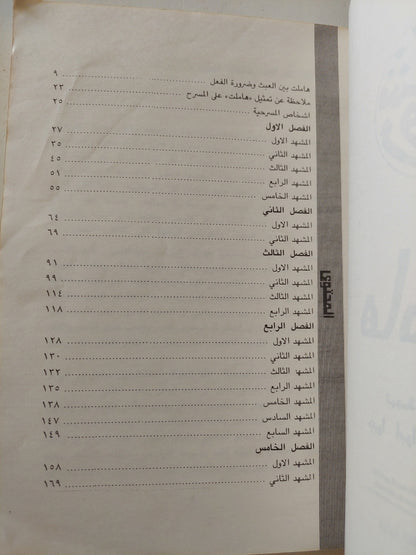 المحتوى
هاملت بين العبث وضرورة الفعل ٩
ملاحظة عن تمثيل «هاملت» على المسرح ٢٣
اشخاص المسرحية ٢٥
الفصل الاول
المشهد الاول ٢٧
المشهد الثاني ٣٥
المشهد الثالث ٤٥
المشهد الرابع ٥١
المشهد الخامس ٥٥
الفصل الثاني
المشهد الاول ٦٤
المشهد الثاني ٦٩
الفصل الثالث
المشهد الاول ٩١
المشهد الثاني ٩٩
المشهد الثالث ١١٤
المشهد الرابع ١١٨
الفصل الرابع
المشهد الاول ١٢٨
المشهد الثاني ١٣٠
المشهد الثالث ١٣٢
المشهد الرابع ١٣٥
المشهد الخامس ١٣٨
المشهد السادس ١٤٧
المشهد السابع ١٤٩
الفصل الخامس
المشهد الاول ١٥٨
المشهد الثاني ١٦٩